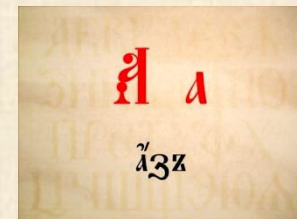 А а
а҆́зъ